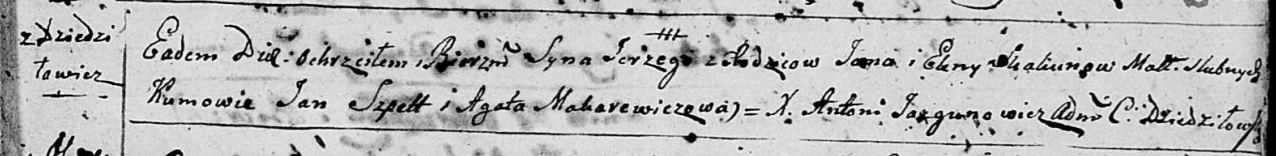 z Dziedzi
łowicz
Eadem Die: ochrzciłem i Bierzmᵒ Syna Jerzego z Rodzicow Jana i Eleny Skakunow Małż. slubnych
Kumowie Jan Szpett i Agata Makarewiczowa) = X. Antoni Jazgunowicz Adm C. Dziedziłows